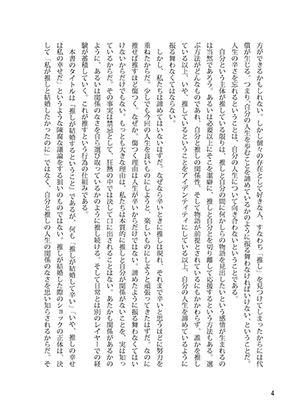 方ができるかもしれない。しかし個々の存在として好きな人、すなわち、「推し」を見つけてしまったからには代
償が生じる。つまり、自分の人生を歩むことを諦めているかのように振る舞わなければいけない、ということだ。
人生の辛さを忘れるということは、自分の人生について何も言わないということである。
自分という主体が推している限りは、推しと自分の間に何がしかの物語を見出したいという感情が生まれるの
は当然であろう。あるいは必要以上にそこを謙虚に、推しと自分とを切り離して応援するという方法もある。選
ぶ方法がどんなものであれ、自分と推しの関係性、そして物語が前提とされているにもかかわらず、誰かを推し
ている以上、いや、推しているということをアイデンティティにしている以上、自分の人生を諦めているように
振る舞わなくてはならない。
しかし、私たちは諦めてはいないはずだ。なぜなら辛いときに推しは現れ、それまで辛いと思うほどに努力を
重ねたからだ。少しでも今回の人生を良いものにしようと、楽しいものにしようと頑張ってきたはずだ。なのに
推せば推すほど傷つく。なぜか。傷つく理由は、人生が辛いからだけではない。諦めたように振る舞わなくては
けないからだけでもない。もっとも大きな理由は、私たちは本質的に推しと自分が関係がないことを、実は知っ
ているからだ。その事実は禁忌として、狂熱の中では決して口に出されることはない。あたかも関係があるかの
ように、あるいは関係のなさを自ら選び取っているかのように推し続ける。そして日常とは別のレイヤーでの経
験が蓄積していく。これが推すという行為の仕組みである。
本書のタイトルは「推しが結婚するということ」であるが、何も、「推しが結婚して辛い」「いや、推しの幸せ
は私の幸せだ」というような陳腐な議論をする狙いのものではない。推しが結婚した際のショックの正体は、決
して「私が推しと結婚したかったのに」ではなく、自分と推しの人生の関係のなさを思い知らされるからだ。そ
4